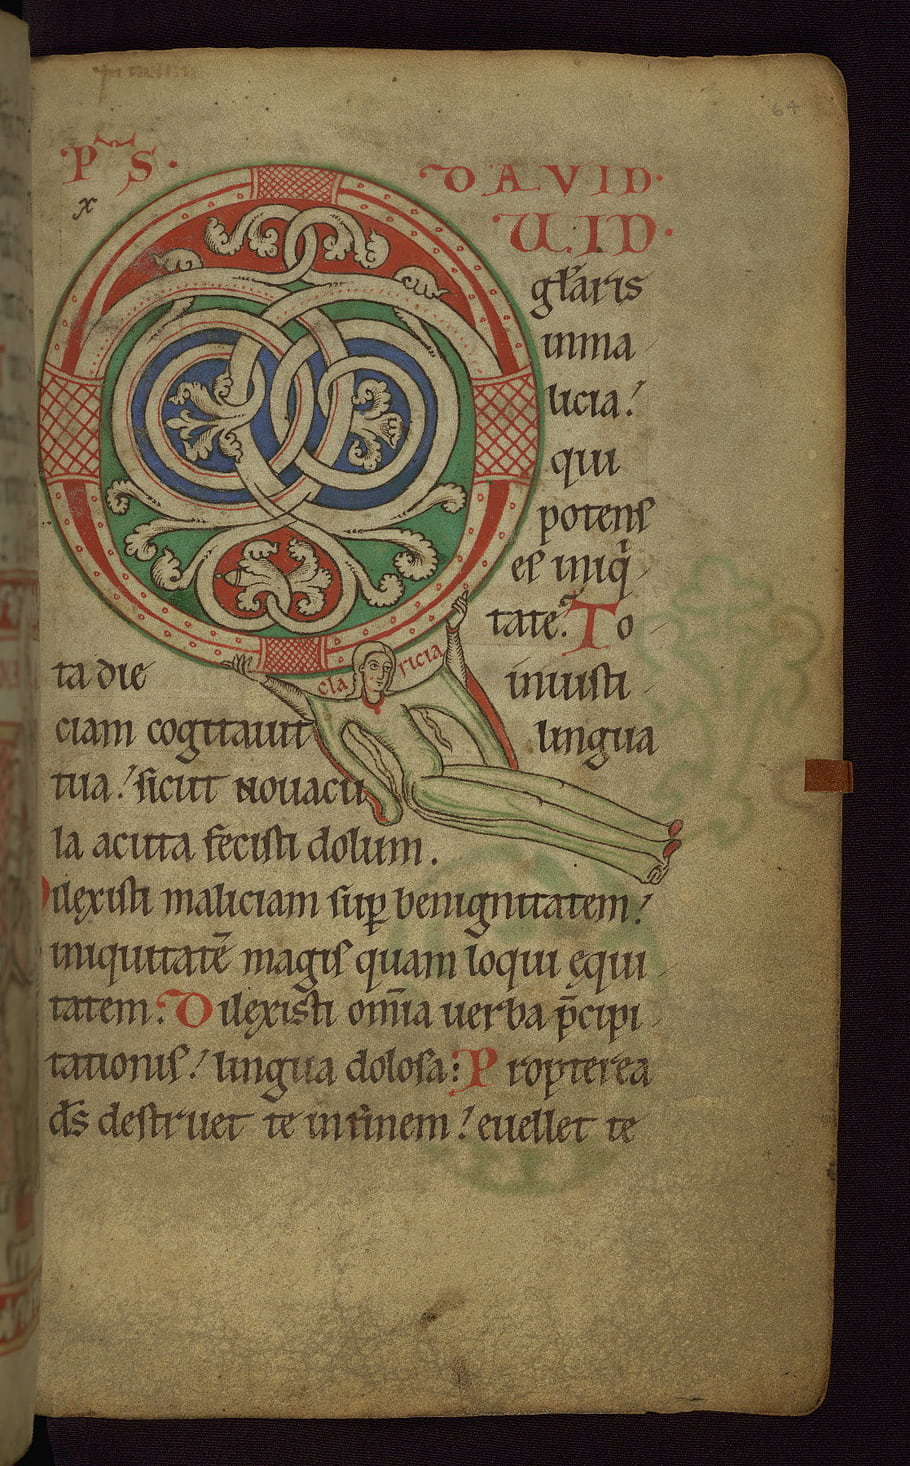 64
Pˢ S. DAVID.
x
UID.
gl̄aris
inma
licia!
qui
potens
es iniq̇
tate. To
cla ricia
ta die iniusti
ciam cogitauit lingua
tua! sicut nouacu
la acuta fecisti dolum.
Dilexisti maliciam suꝑ benignitatem!
iniquitatē magis quam loqui ęqui
tatem. Dilexisti om̄ia uerba p̄cipi
tationis! lingua dolosa: Propterea
d̄s destruet te in finem! euellet te